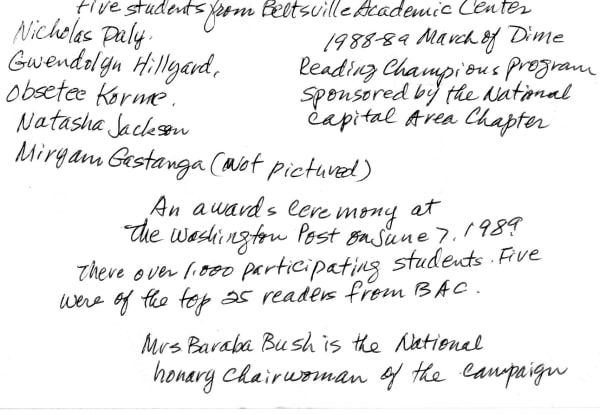 Five students from Beltsville Academic Center
Nicholas Daly.
Gwendolyn Hillyard,
Obsetee Korme.
Natasha Jackson
Miryam Gastanga (Not pictured)
1988-89 March of Dime
Reading Champions Program
sponsored by the National
Capital Area Chapter
An awards ceremony at
The Washington Post on June 7, 1989
There over 1,000 participating students. Five
were of the top 25 readers from BAC.
Mrs Baraba Bush is the National
honary Chairwoman of the campaign